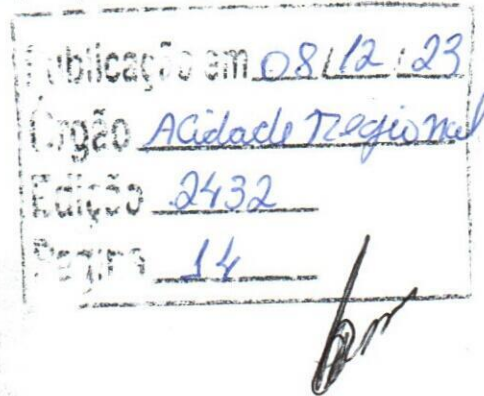 Publicação em 08/12/23
Órgão A Cidade Regional
Edição 2432
Página 14